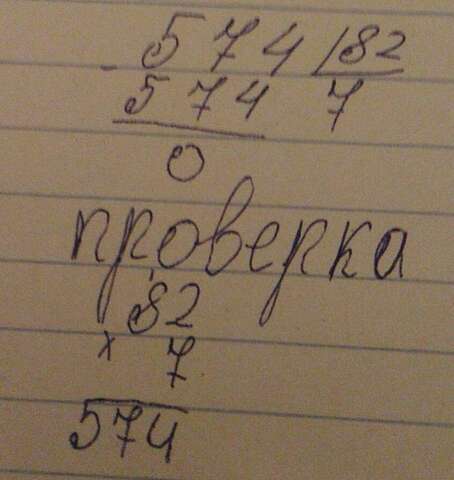 574 | 82
- 574 7
0
проверка
82
× 7
574